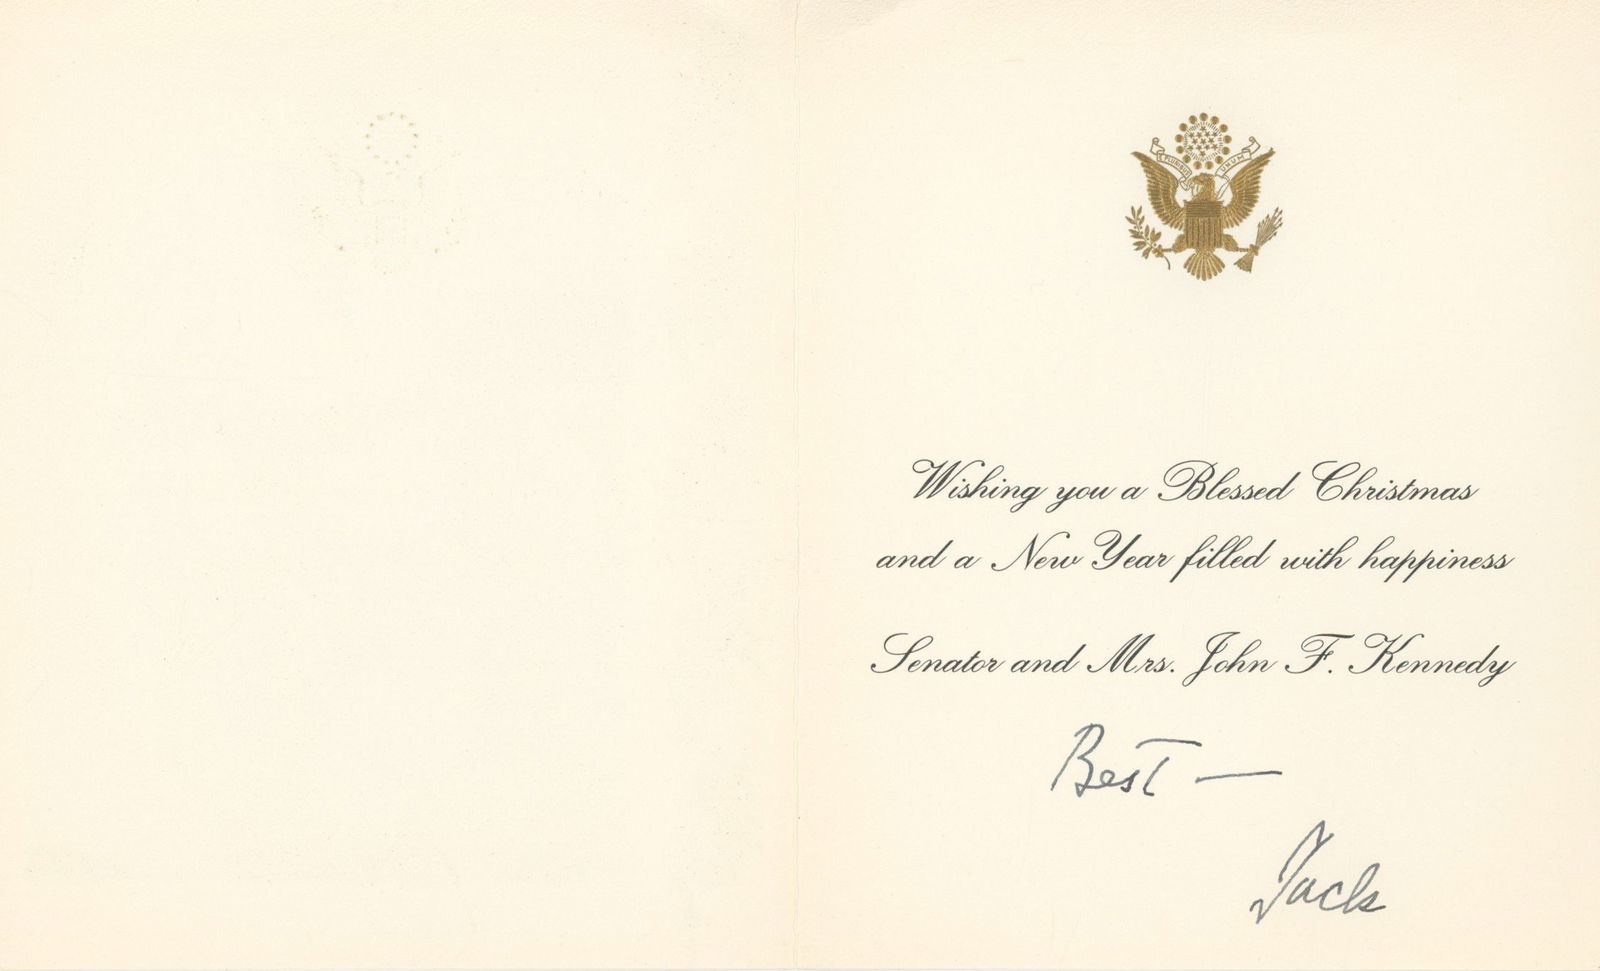 PLURIBUS UNUM
Wishing you a Blessed Christmas
and a New Year filled with happiness
Senator and Mrs. John F. Kennedy
Best —
Jack